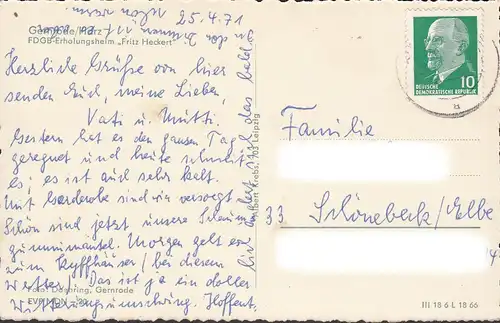 25.4.71
Gernrode/Harz
FDGB-Erholungsheim „Fritz Heckert"
Herzliche Grüße von hier
senden Euch, meine Lieben,
Vati u. Mutti.
Gestern hat es den ganzen Tag
geregnet und heute schneit
es; es ist auch sehr kalt.
Mit Garderobe sind wir versorgt.
Schön sind jetzt unsere
Morgen geht es
zum Kyffhäuser/bei diesem
Wetter/ Das ist ja ein doller
Witterungsumschwung. Hoffent-
lich das bald
Foto: Doehring, Gernrode
Krebs, 703 Leipzig
10
DEUTSCHE
DEMOKRATISCHE REPUBLIK
Familie
33 Schönebeck/Elbe
III 18 6 L 18 66